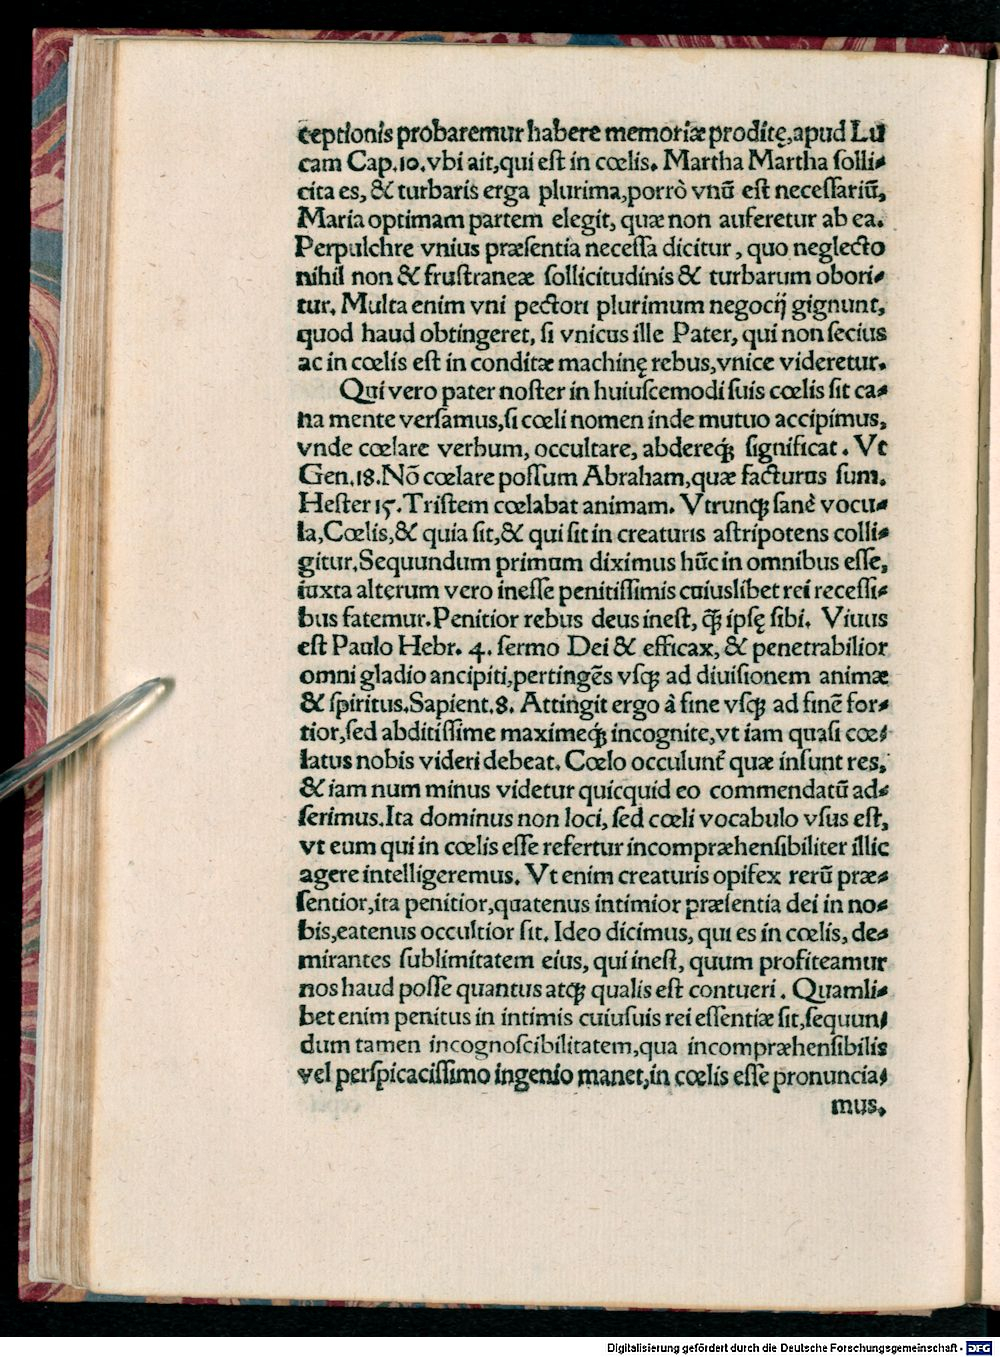 ceptionis probaremur habere memoriæ proditę,apud Lu
cam Cap.10.vbi ait,qui est in cœlis. Martha Martha solli-
cita es, & turbaris erga plurima,porrò vnũ est necessariũ,
Maria optimam partem elegit, quæ non auferetur ab ea.
Perpulchre vnius præsentia necessa dicitur, quo neglecto
nihil non & frustraneæ sollicitudinis & turbarum obori-
tur. Multa enim vni pectori plurimum negocij gignunt,
quod haud obtingeret, si vnicus ille Pater, qui non secius
ac in cœlis est in conditæ machinę rebus,vnice videretur.
Qui vero pater noster in huiuscemodi suis cœlis sit ca-
na mente versamus,si cœli nomen inde mutuo accipimus,
vnde cœlare verbum, occultare, abdereq́; significat. Vt
Gen.18. Nõ cœlare possum Abraham,quæ facturus sum.
Hester 15. Tristem cœlabat animam. Vtrunq; sanè vocu-
la,Cœlis,& quia sit,& qui sit in creaturis astripotens colli-
gitur.Sequundum primum diximus hũc in omnibus esse,
iuxta alterum vero inesse penitissimis cuiuslibet rei recessi-
bus fatemur.Penitior rebus deus inest, q̃; ipsę sibi. Viuus
est Paulo Hebr. 4. sermo Dei & efficax, & penetrabilior
omni gladio ancipiti,pertingẽs vsq; ad diuisionem animæ
& spiritus,Sapient.8. Attingit ergo â fine vsq; ad finẽ for-
tior,sed abditissime maximeq́; incognite,vt iam quasi cœ-
latus nobis videri debeat. Cœlo occulunt̃ quæ insunt res,
& iam num minus videtur quicquid eo commendatũ ad-
serimus.Ita dominus non loci, sed cœli vocabulo vsus est,
vt eum qui in cœlis esse refertur incompræhensibiliter illic
agere intelligeremus. Vt enim creaturis opifex rerũ præ-
sentior,ita penitior,quatenus intimior præsentia dei in no-
bis,eatenus occultior sit. Ideo dicimus, qui es in cœlis, de-
mirantes sublimitatem eius, qui inest, quum profiteamur
nos haud posse quantus atq; qualis est contueri. Quamli-
bet enim penitus in intimis cuiusuis rei essentiæ sit,sequun-
dum tamen incognoscibilitatem,qua incompræhensibilis
vel perspicacissimo ingenio manet,in cœlis esse pronuncia-
mus.
Digitalisierung gefördert durch die Deutsche Forschungsgemeinschaft - DFG